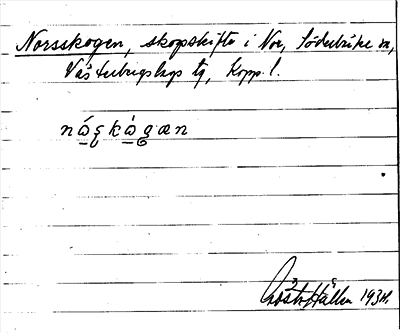 Norsskogen, skogsskifte i Nor, Söderbärke sn,
Västerbergslags tg, Kopp. l.
nå̱ʂkå̱gæn
Hällen 1934.